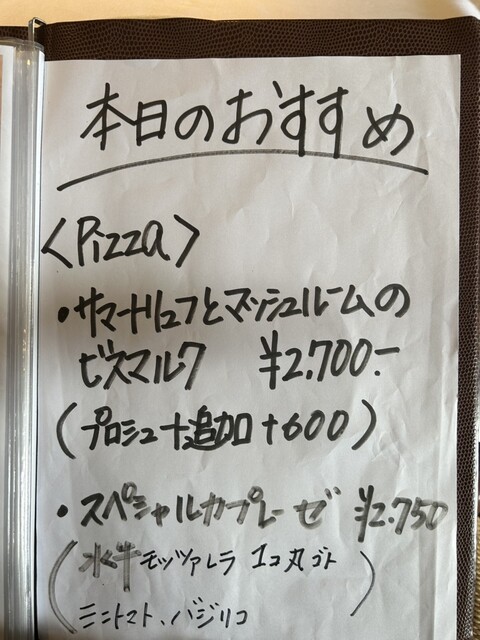 本日のおすすめ
〈Pizza〉
・サマートリュフとマッシュルームの
ビスマルク ¥2,700.-
(プロシュート追加+600)
・スペシャルカプレーゼ ¥2,750
(水牛モッツァレラ 1コ丸ゴト
ミニトマト、バジリコ)